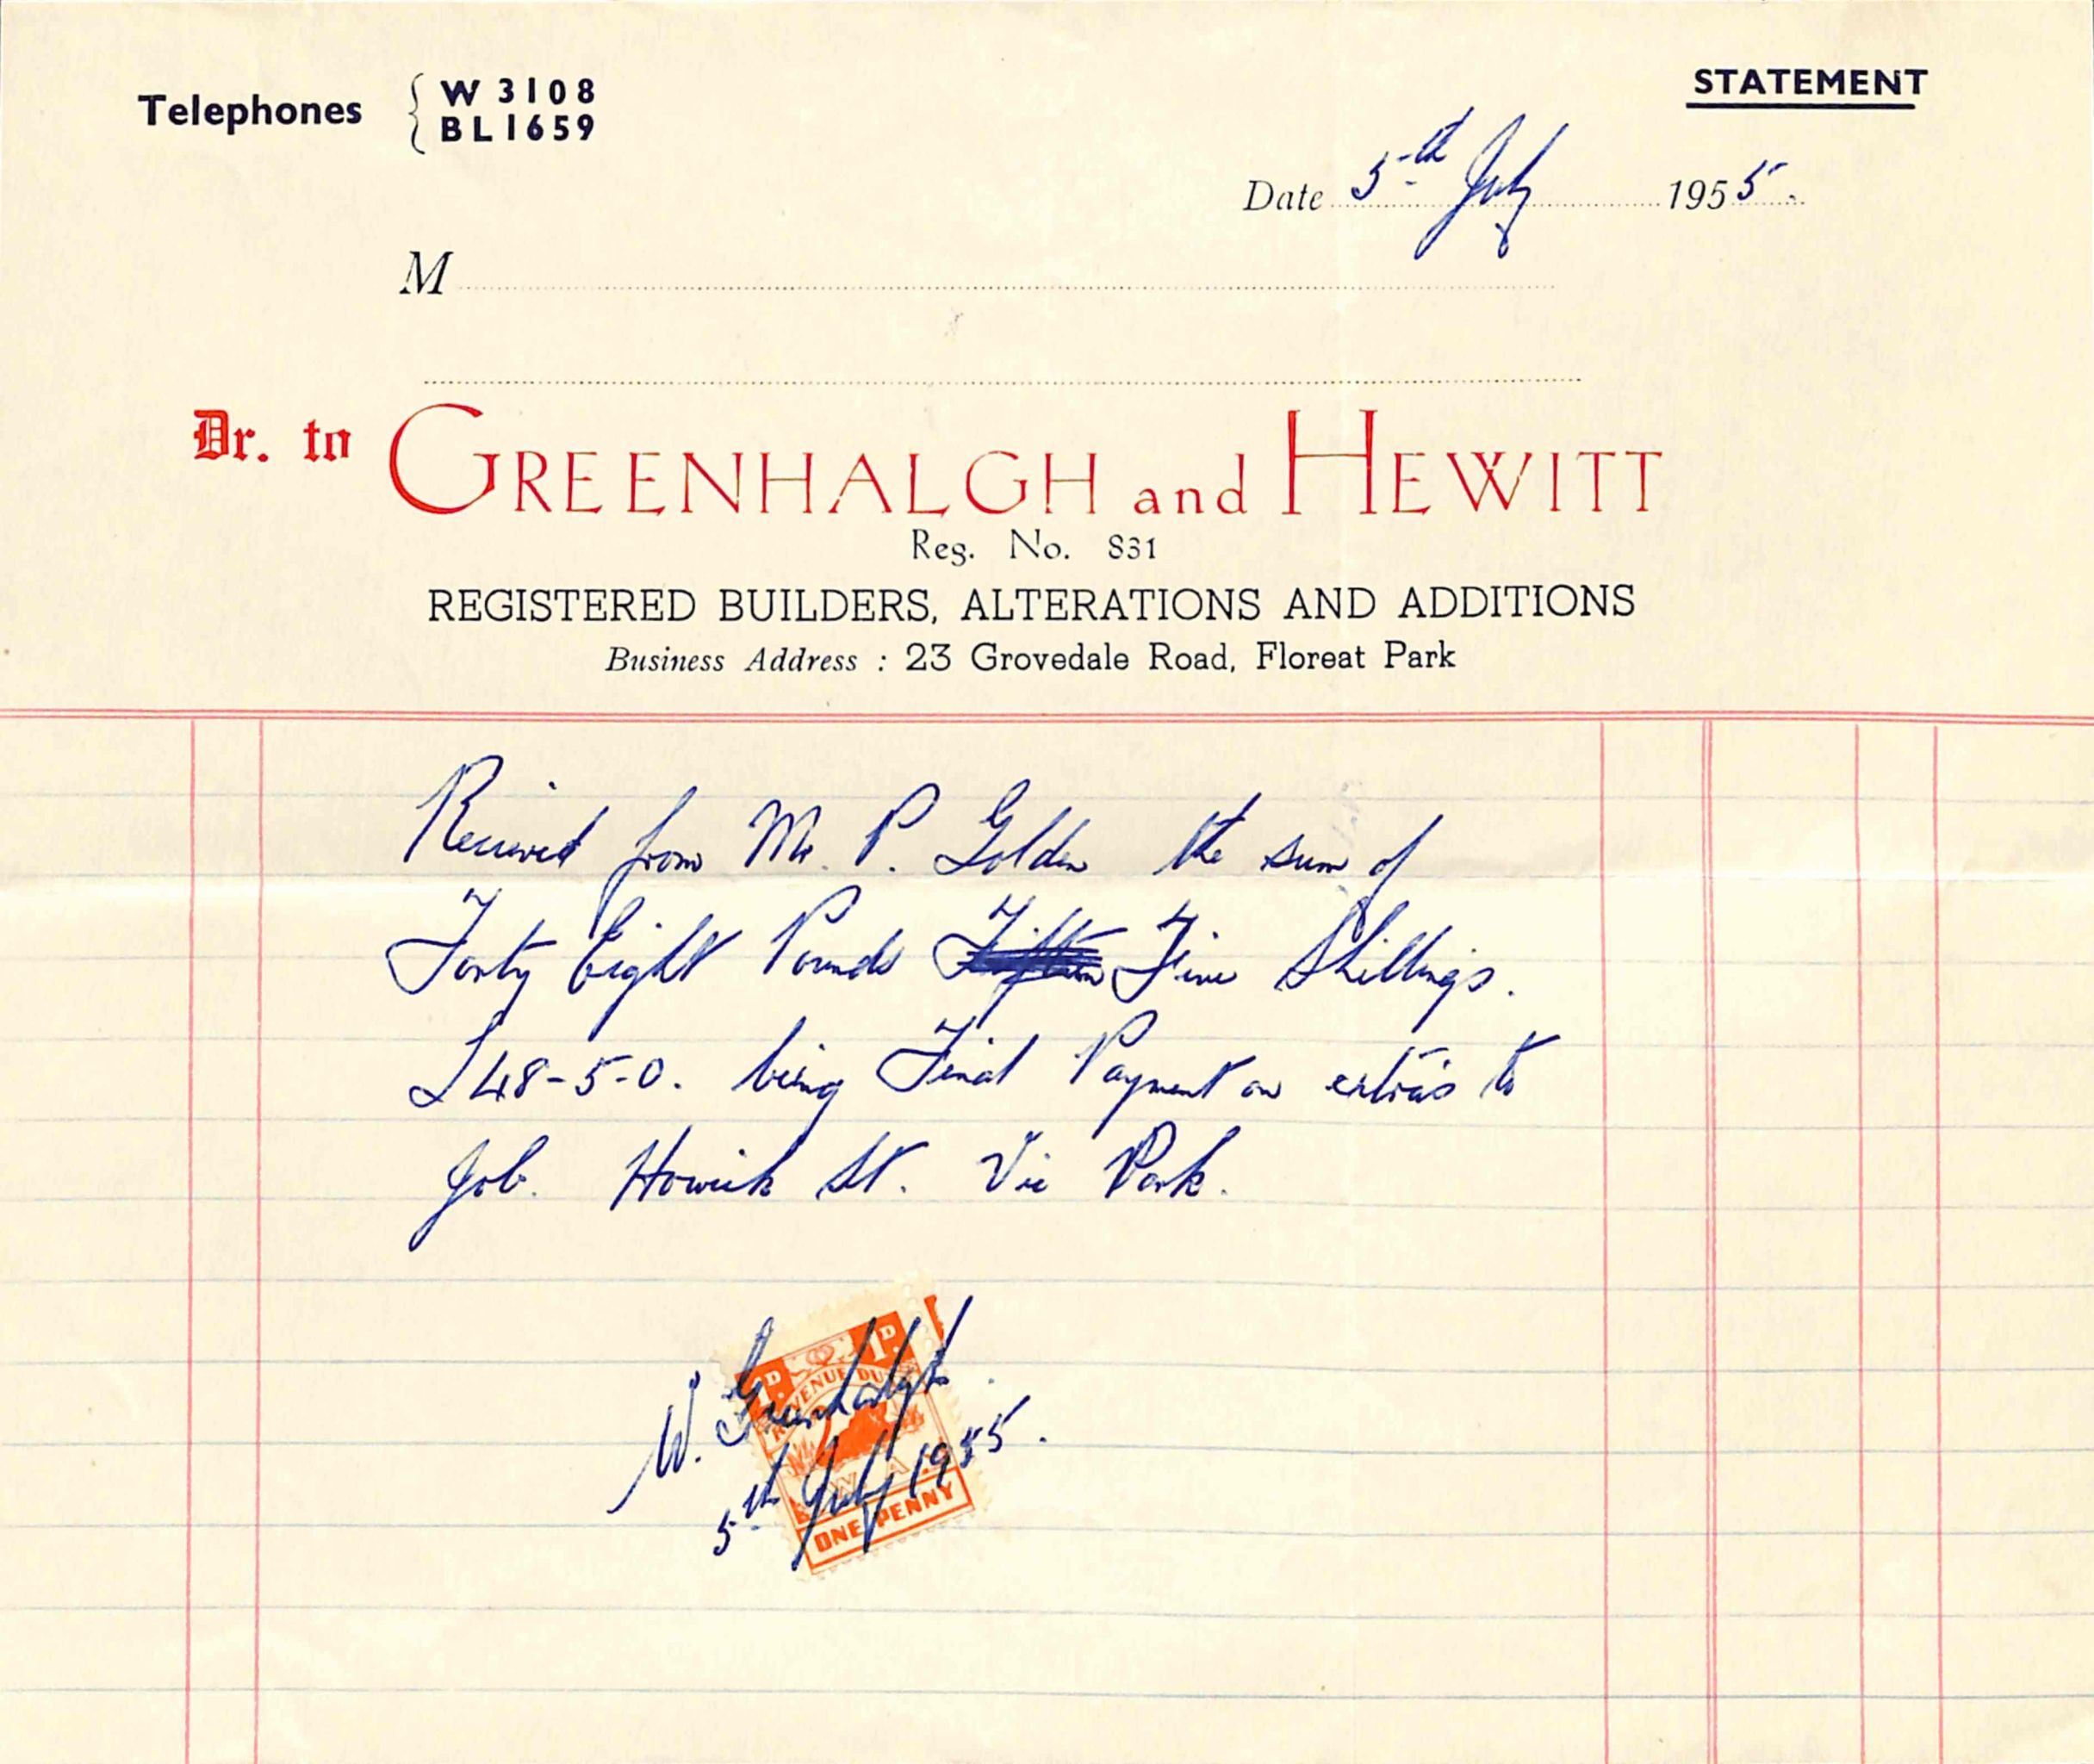 Telephones { W 3108
BL 1659
STATEMENT
Date 5th July 1955.
M
Dr. to GREENHALGH and HEWITT
Reg. No. 831
REGISTERED BUILDERS, ALTERATIONS AND ADDITIONS
Business Address : 23 Grovedale Road, Floreat Park
Received from Mr. P. Golden the sum of
Forty Eight Pounds Fifteen Five Shillings.
£48-5-0. being Final Payment on extras to
job. Howick St. Vic Park.
W. Greenhalgh.
5th July 1955.
1D. 1D.
REVENUE DUTY
W.A.
ONE PENNY